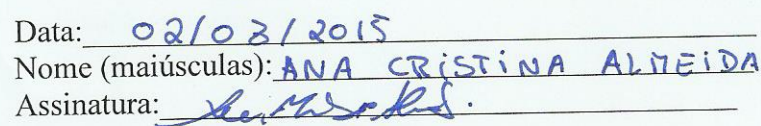 Data: 02/03/2015
Nome (maiúsculas): ANA CRISTINA ALMEIDA
Assinatura: